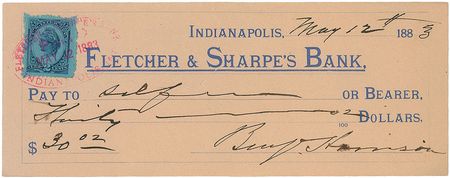 INDIANAPOLIS, May 12th 1883
FLETCHER & SHARPE'S BANK,
PAY TO self OR BEARER,
Thirty 02/100 DOLLARS.
$ 30 02 Benj. Harrison